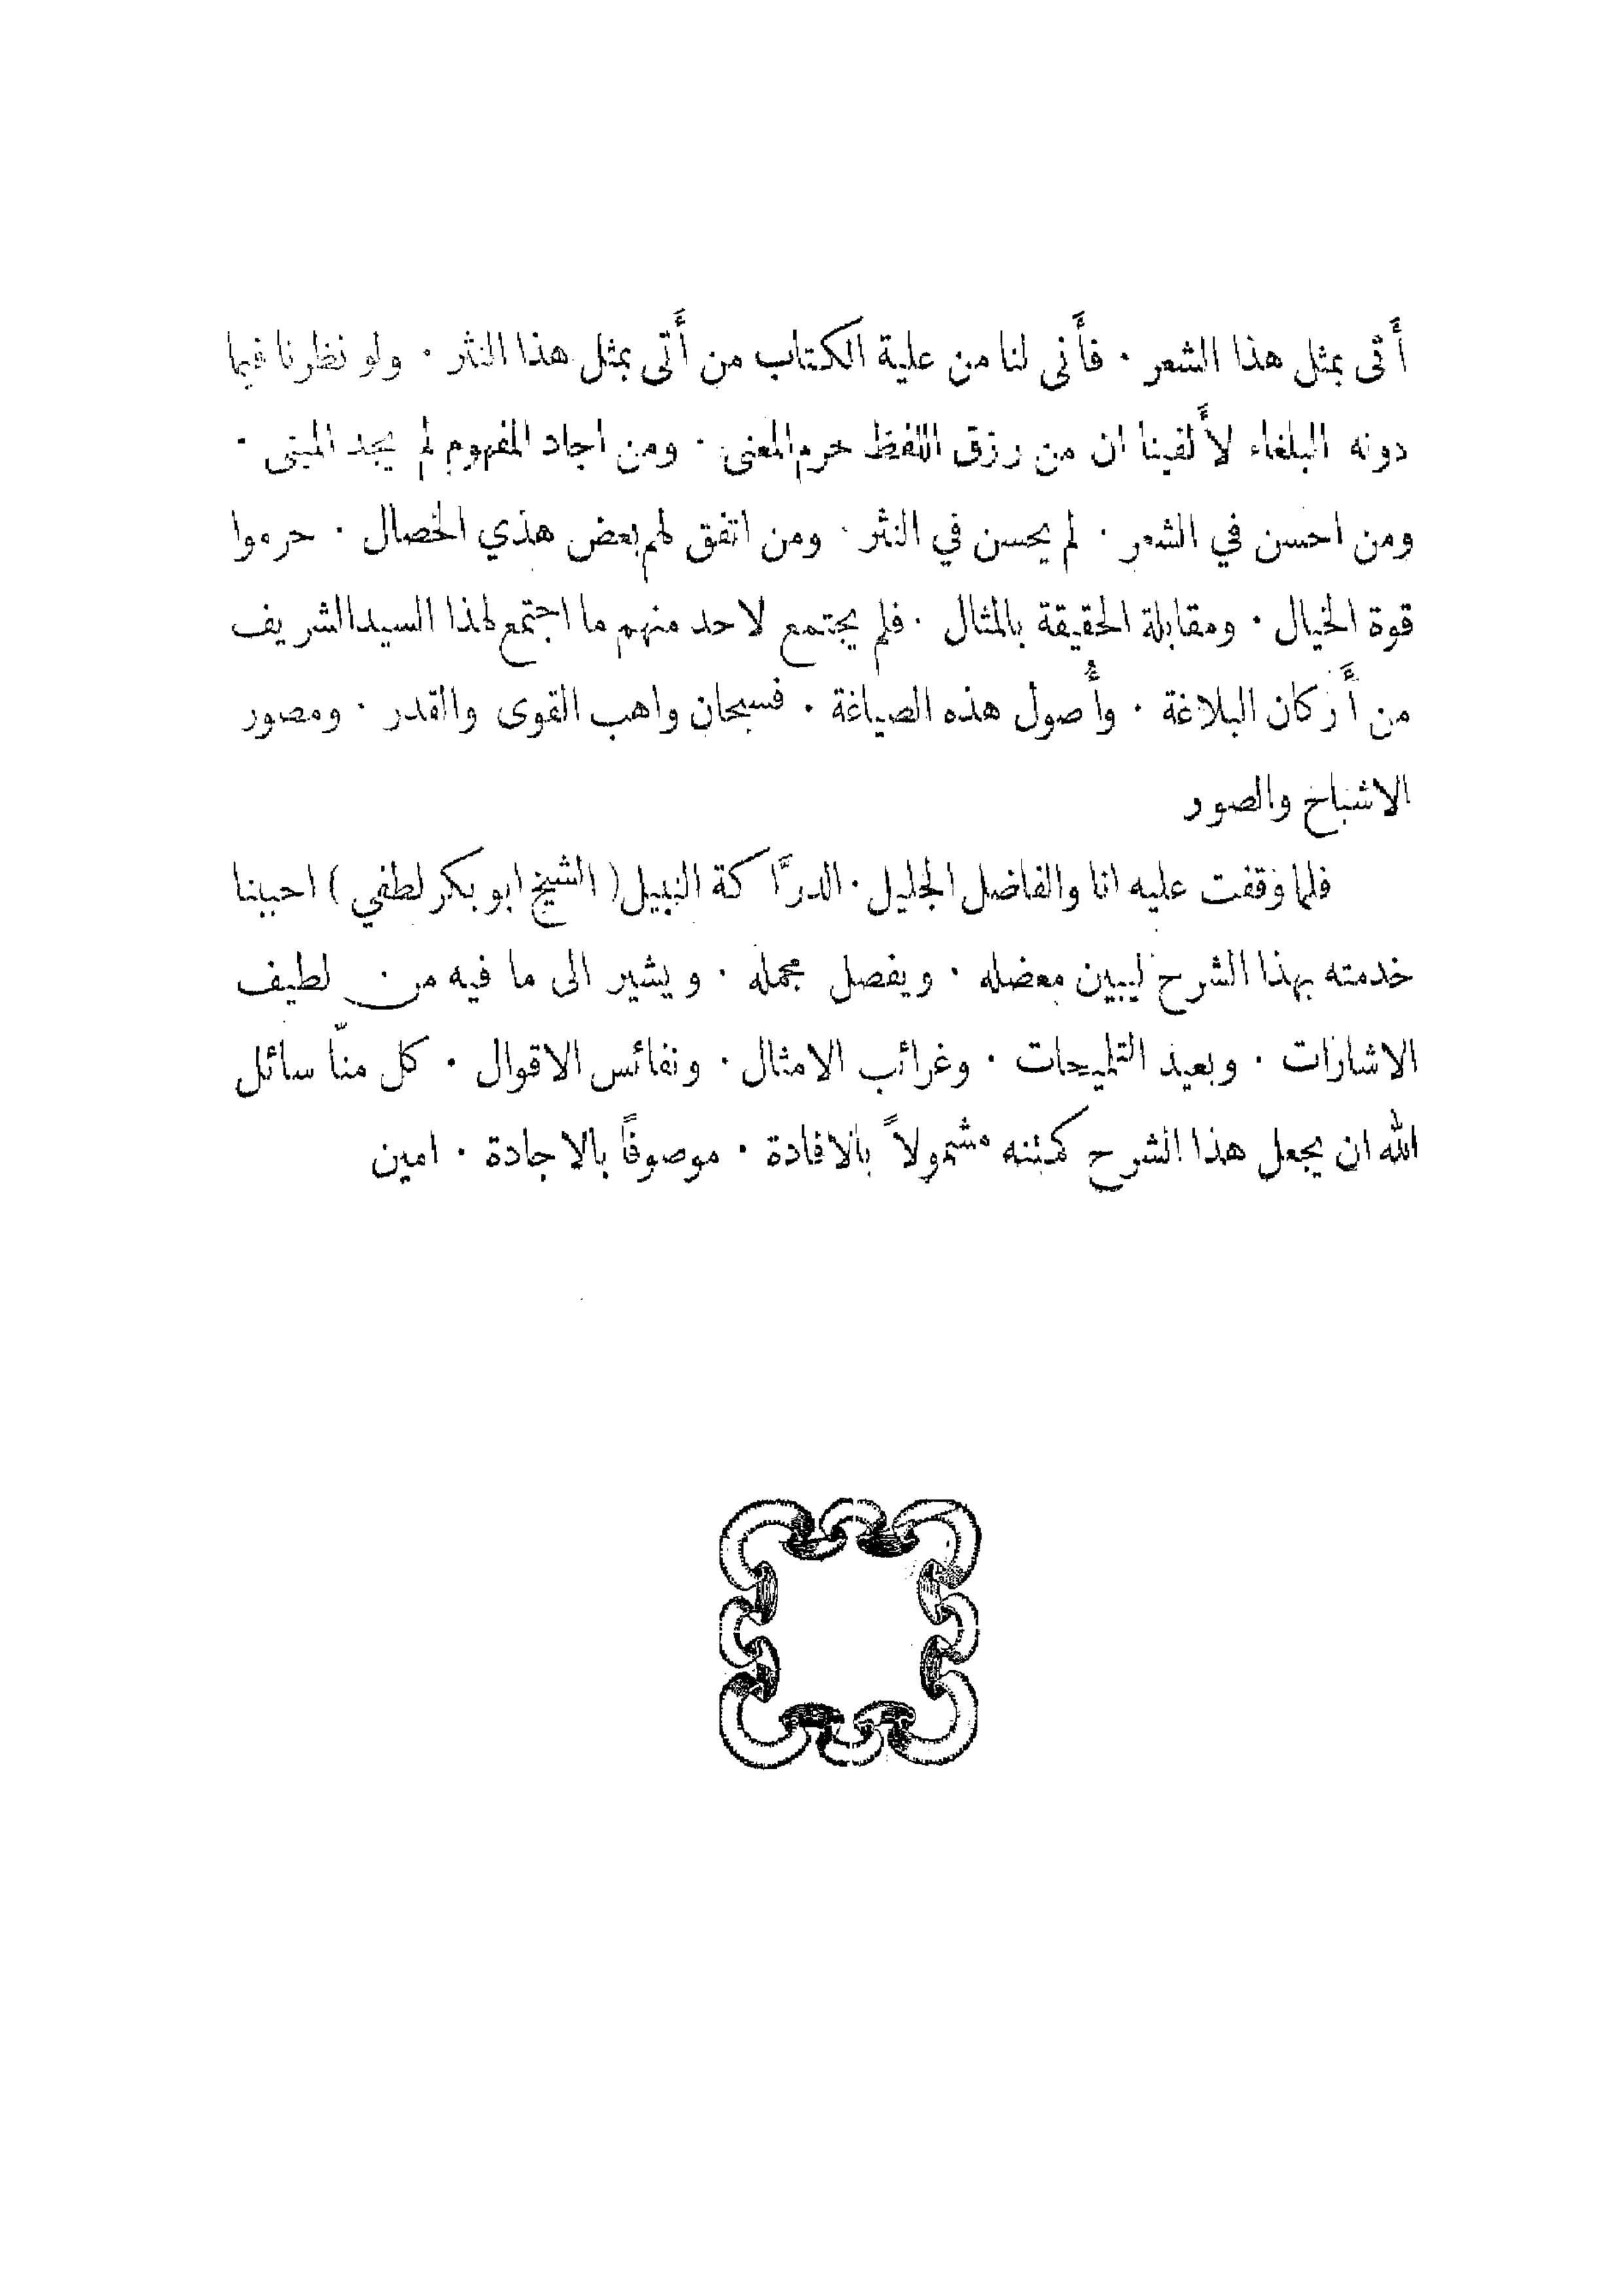 أَتى بمثل هذا الشعر · فأَنى لنا من علية الكتاب من أَتى بمثل هذا النثر · ولو نظرنا فيما
دونه البلغاء لأَلفينا ان من رزق اللفظ حرم المعنى · ومن اجاد المفهوم لم يجد المبنى ·
ومن احسن في الشعر · لم يحسن في النثر · ومن اتفق لهم بعض هذي الخصال · حرموا
قوة الخيال · ومقابلة الحقيقة بالمثال · فلم يجتمع لاحد منهم ما اجتمع لهذا السيد الشريف
من أَركان البلاغة · وأُصول هذه الصياغة · فسبحان واهب القوى والقدر · ومصور
الاشباخ والصور
فلما وقفت عليه انا والفاضل الجليل · الدرَّاكة النبيل (الشيخ ابو بكر لطفي) احببنا
خدمته بهذا الشرح ليبين معضله · ويفصل مجمله · ويشير الى ما فيه من لطيف
الاشارات · وبعيد التلميحات · وغرائب الامثال · ونفائس الاقوال · كل منّا سائل
الله ان يجعل هذا الشرح كمتنه مشمولاً بالافادة · موصوفًا بالاجادة · امين